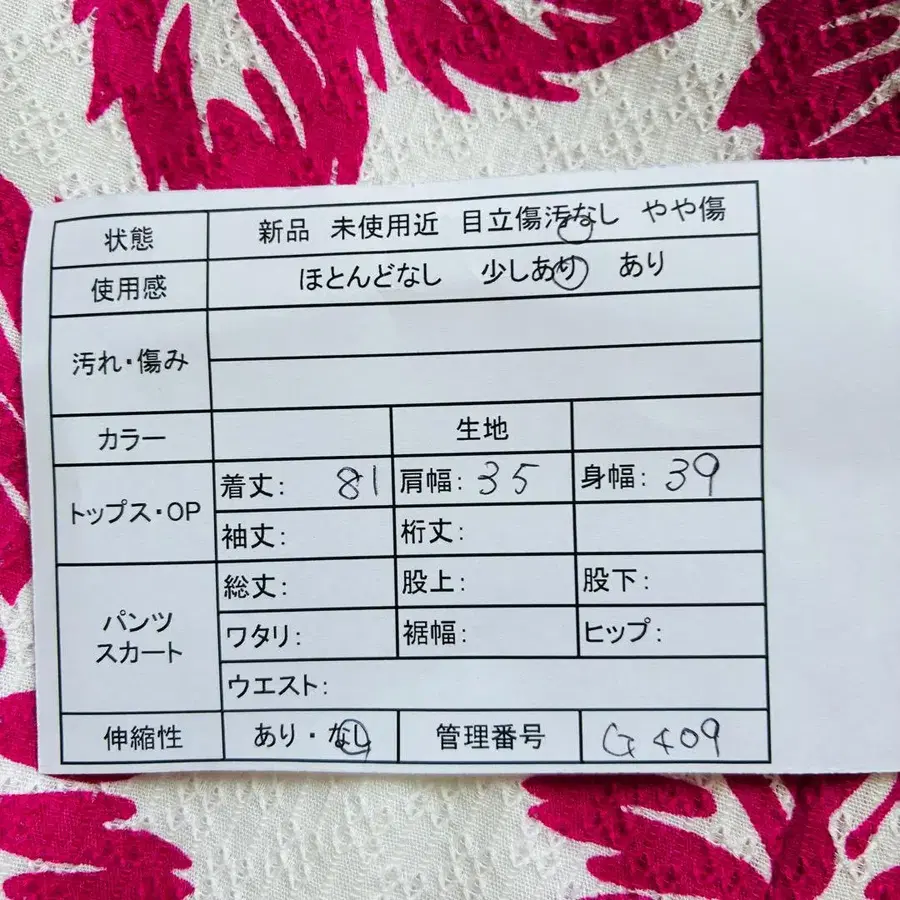 状態 新品 未使用近 目立傷汚なし やや傷
使用感 ほとんどなし 少しあり あり
汚れ・傷み
カラー 生地
トップス・OP 着丈: 81 肩幅: 35 身幅: 39
袖丈: 裄丈:
パンツ スカート 総丈: 股上: 股下:
ワタリ: 裾幅: ヒップ:
ウエスト:
伸縮性 あり・なし 管理番号 G409